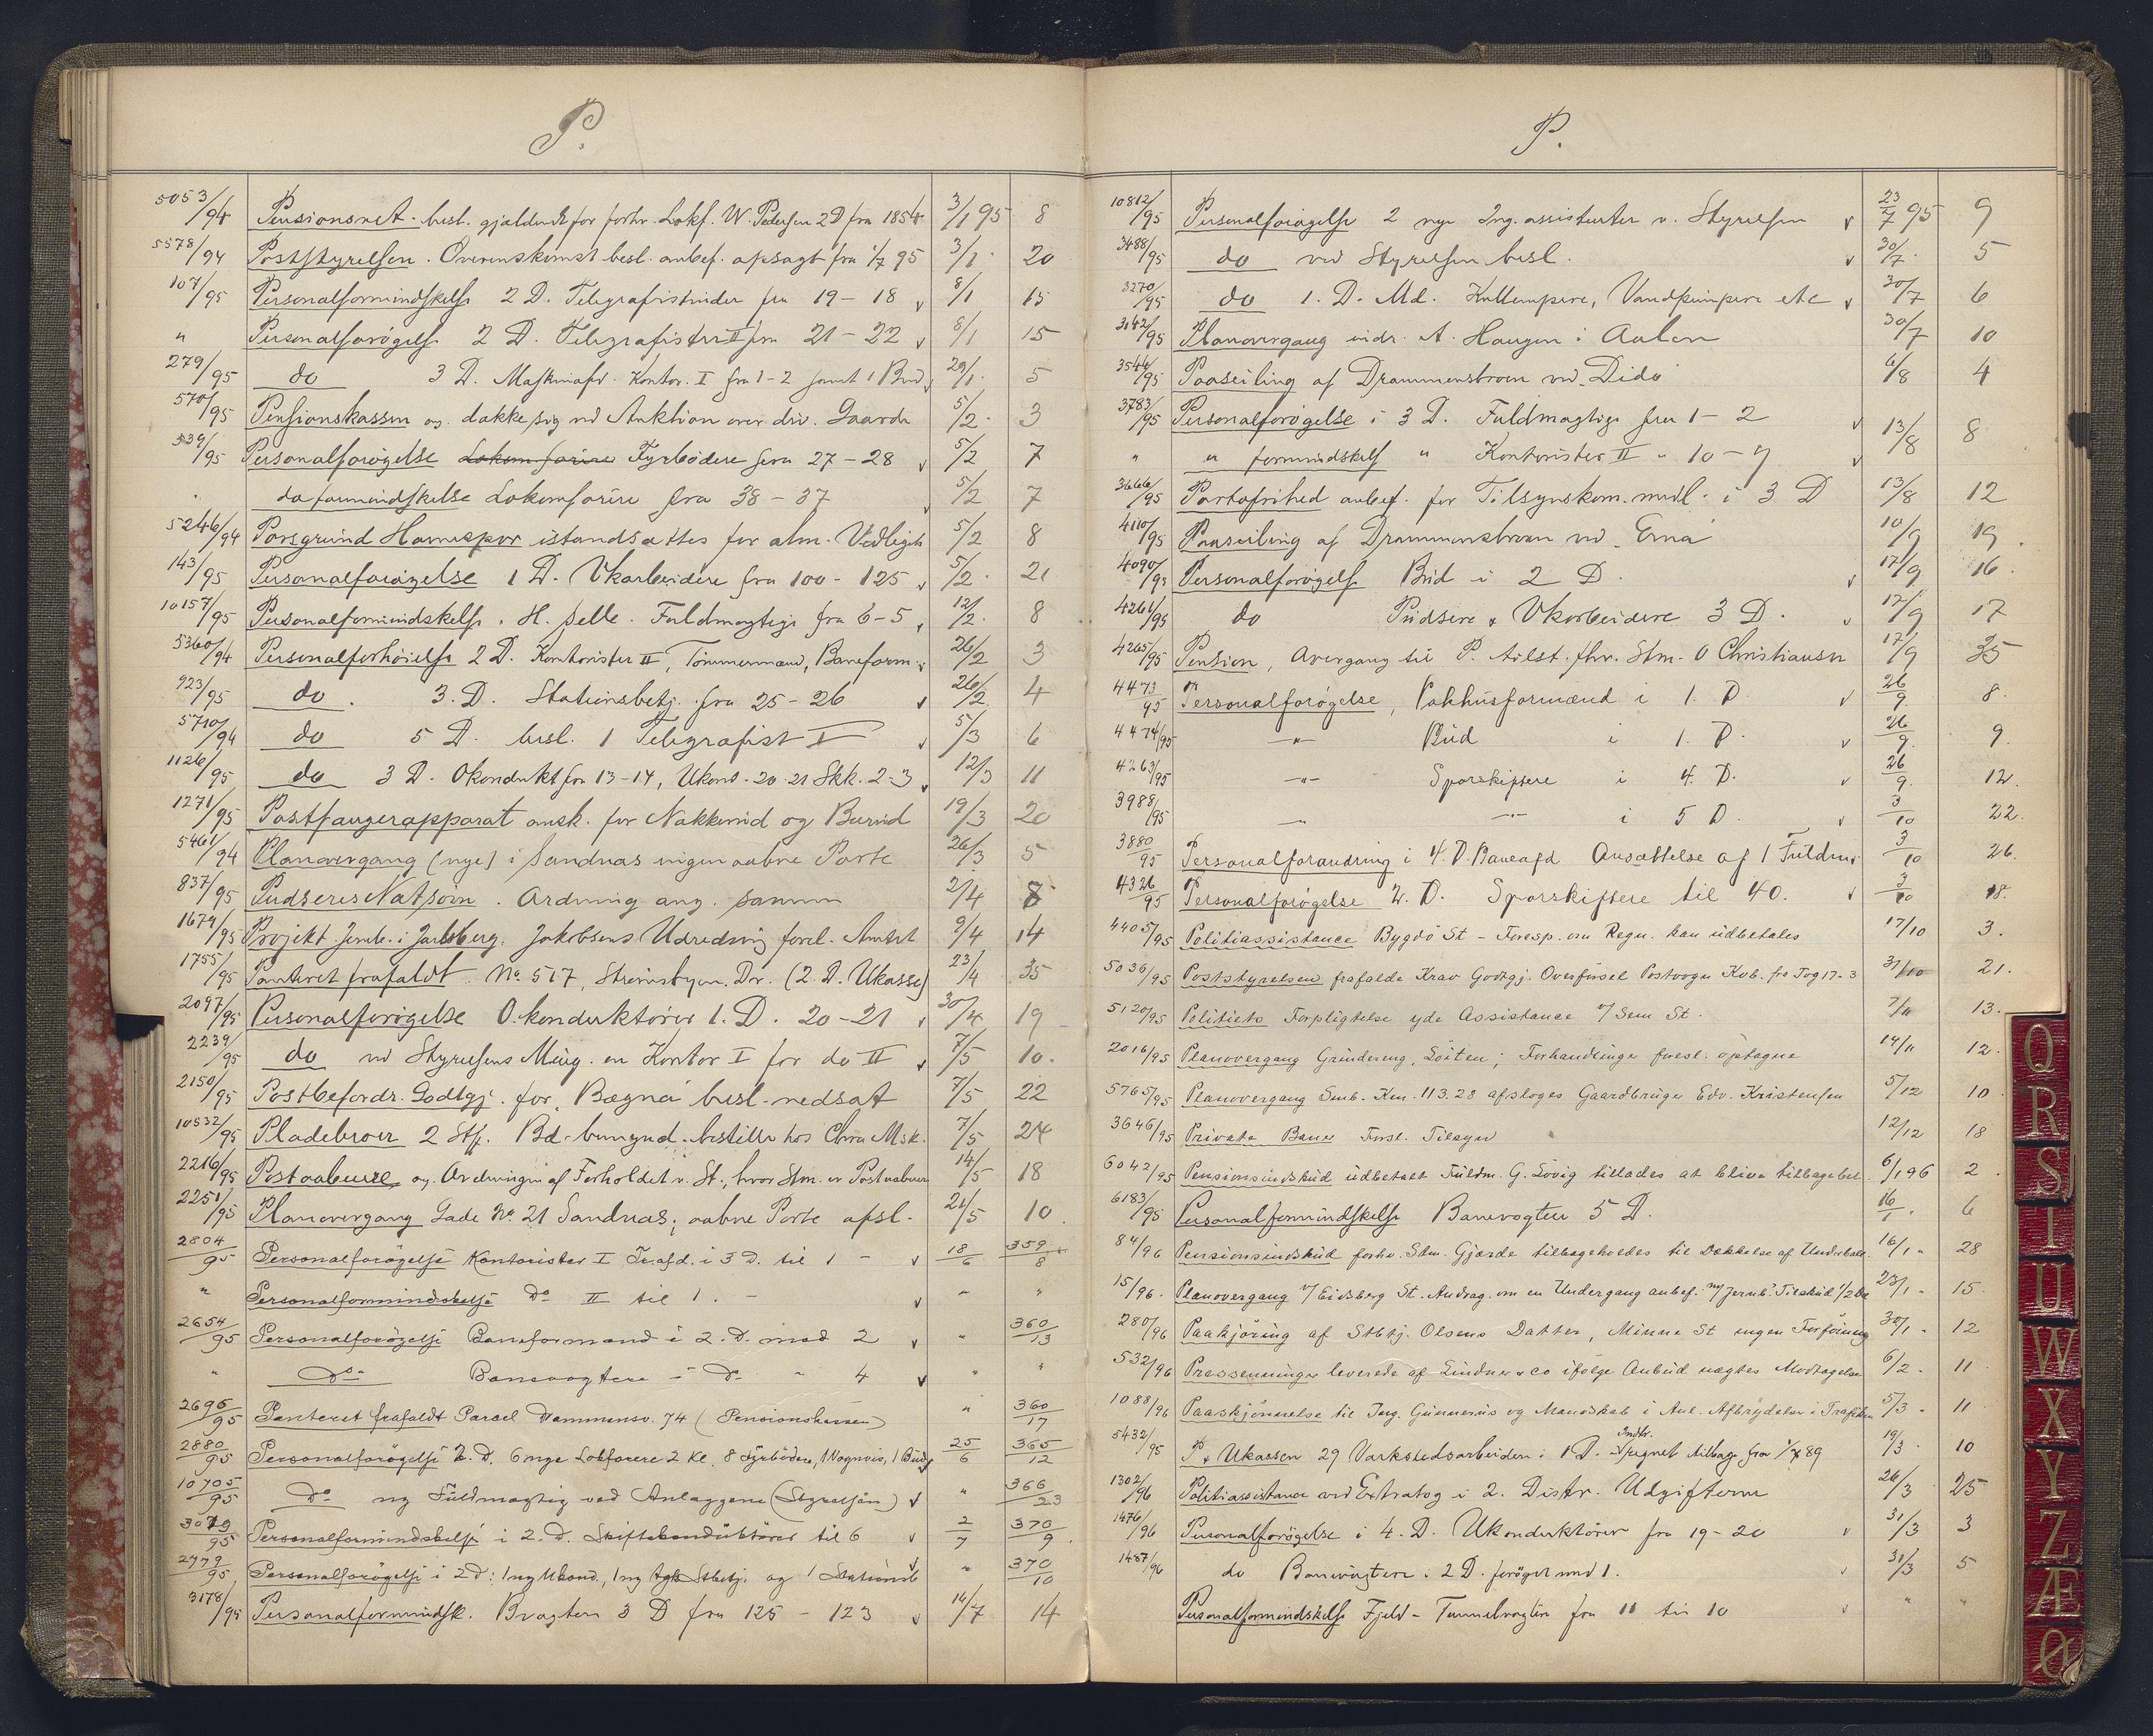 P.
5053/94 Pensionsret. besl. gjældende for forhv. Lokf. W. Pedersen 2 D fra 1854 3/1 95 8
5578/94 Poststyrelsen. Overenskomst besl. anbef. opsagt fra 1/7 95 3/1 20
107/95 Personalformindskelse 2 D. Telegrafistinder fra 19-18 v 8/1 15
" Personalforøgelse 2 D. Telegrafister II fra 21-22 v 8/1 15
279/95 do 3 D. Maskinafd. Kontor. I fra 1-2 samt 1 Bud v 29/1 5
570/95 Pensionskassen og. dække sig ved Auktion over div. Gaarde 5/2 3
539/95 Personalforøgelse Lokomførere Fyrbødere fra 27-28 v 5/2 7
" do formindskelse Lokomførere fra 38-37 v 5/2 7
5246/94 Porsgrund Havnespor istandsættes for alm. Vedligeh 5/2 8
143/95 Personalforøgelse 1 D. Vkarbeidere fra 100-125 v 5/2 21
10157/95 Personalformindskelse. H. Selle. Fuldmægtige fra 6-5 v 12/2 8
5360/94 Personalforhøielse 2 D. Kontorister II, Tømmermænd, Baneform. v 26/2 3
923/95 do. 3. D. Stationsbetj. fra 25-26 v 26/2 4
5710/94 do 5 D. besl. 1 Telegrafist II v 5/3 6
1126/95 do 3 D. Okondukt fra 13-14, Ukond. 20-21 Skk. 2-3 v 12/3 11
1271/95 Postfangerapparat ansk. for Nakkerud og Burud 19/3 20
5461/94 Planovergang (nye) i Sandnæs ingen aabne Porte 26/3 5
837/95 Pudseres Natsøvn. Ordning ang. samme 2/4 8
1679/95 Projekt Jernb. i Jarlsberg. Jakobsens Udredning forel. Amtet 9/4 14
1755/95 Panteret frafaldt No. 517, Strømsbyen. Dr. (2. D. Ukasse) 23/4 35
2097/95 Personalforøgelse O.konduktører 1. D. 20-21 v 30/4 19
2239/95 do ved Styrelsens Maing. en Kontor I for do II v 7/5 10.
2150/95 Postbefordr. Godtgj. for „Bægna" besl. nedsat 7/5 22
10532/95 Pladebroer 2 Stk. Bd.-bungnd. bestilles hos Chra Msk. 7/5 24
2216/95 Postaabnere og Ordningen af Forholdet v. St., hvor Stm. er Postaabner 14/5 18
2251/95 Planovergang Gade No. 21 Sandnæs; aabne Porte afsl. 21/5 10
2804/95 Personalforøgelse Kontorister I Traf.d. i 3 D. til 1 - v 18/6 359/8
" Personalformindskelse Do II til 1. - v " "
2654/95 Personalforøgelse Baneformænd i 2. D. med 2 v " 360/13
" Do Banevogtere - Do - 4 v " "
2695/95 Panteret frafaldt Parcel Dammensv. 74 (Pensionskassen) " 360/17
2880/95 Personalforøgelse 2. D. 6 nye Lokførere 2 Kl. 8 Fyrbødere, 1 Vognvis, 1 Bud v 25/6 365/12
10705/95 Do ny Fuldmægtig ved Anlæggene (Styrelsen) v " 366/23
3079/95 Personalformindskelse i 2. D. Skiftekonduktører til 6 v 2/7 370/9
2779/95 Personalforøgelse i 2 D: 1 ny Ukond., 1 ny Stbetj. og 1 Stationsb v " 370/10
3178/95 Personalformindsk. Bvogtere 3 D fra 125-123 v 16/7 14
P.
10812/95 Personalforøgelse 2 nye Ing. assistenter v. Styrelsen v 23/7 95 9
3488/95 do ved Styrelsen besl. v 30/7 5
3270/95 do 1. D. Md. Kullempere, Vandpumpere etc v 30/7 6
3142/95 Planovergang indr. A. Haugen i Aalen 30/7 10
3544/95 Paaseiling af Drammensbroen ved „Dido" 6/8 4
3783/95 Personalforøgelse i 3 D. Fuldmægtige fra 1-2 v 13/8 8
" " formindskelse " Kontorister II " 10-9 v
3666/95 Portofrihed anbef. for Tilsynskom. medl. i 3 D 13/8 12
4110/95 Paaseiling af Drammensbroen ved „Erna" 10/9 19
4090/95 Personalforøgelse Bud i 2 D. v 17/9 16
4261/95 do Pudsere & Vkarbeidere 3 D. v 17/9 17
4265/95 Pension, Overgang til P. tilst. fhv. Stm. O Christiansen 17/9 35
4473/95 Personalforøgelse, Pakhusformænd i 1. D. v 26/9 8.
4474/95 -"- Bud i 1. D. v 26/9 9.
4263/95 -"- Sporskiftere i 4. D. v 26/9 12.
3988/95 -"- -"- i 5 D. v 3/10 22.
3880/95 Personalforandring i 4. D. Baneafd Ansættelse af 1 Fuldm. 3/10 26.
4326/95 Personalforøgelse 2. D. Sporskiftere til 40. v 3/10 18.
4405/95 Politiassistance Bygdø St - Foresp. om Regn. kan udbetales 17/10 3.
5036/95 Poststyrelsen frafalde Krav Godtgj. Overførsel Postvogn Kvb. fra Tog 17-3 31/10 21.
5120/95 Politiets Forpligtelse yde Assistance v/ Sem St. 7/11 13.
2016/95 Planovergang Grundereng, Løiten; Forhandlinger foresl. optagne 14/11 12.
5765/95 Planovergang Smb. Km. 113.28 afsloges Gaardbruger Edv. Kristensen 5/12 10
3646/95 Private Baner Forsl. Tilsyn 12/12 18
6042/95 Pensionsindskud udbetalt Fuldm. G. Lövig tillades at blive tilbagebet. 6/1 96 2
6183/95 Personalformindskelse Banevogtere 5 D. 16/1 6
84/96 Pensionsindskud forhv. Stm. Gjærde tilbageholdes til Dækkelse af Underbal. 16/1 28
15/96 Planovergang v/ Eidsberg St. Andrag. om en Undergang anbef. m/ Jernb. Tilskud 1/2 Del 23/1 15
280/96 Paakjøring af Stbtj. Olsens Datter, Minne St ingen Forføining 30/1 12
532/96 Presseninger leverede af Lindner & co ifølge Anbud nægtes Modtagelse 6/2 11
1088/96 Paaskjønnelse til Ing. Gunnerus og Mandskab i Anl. Afbrydelser i Trafiken 5/3 11
5432/95 P & Ukassen 29 Værkstedsarbeidere i 1 D. Indtr. regnet tilbage fra 1/7 89 19/3 10
1302/96 Politiassistance ved Extratog i 2. Distr. Udgifterne 26/3 25
1476/96 Personalforøgelse i 4. D. Ukonduktører fra 19-20 v 31/3 3
1487/96 do Banevogtere i 2 D. forøget med 1. v 31/3 5
Personalformindskelse Fjeld- Tunnelvogtere fra 11 til 10 v " "
Q
R
S
T
U
W
X
Y
Z
Æ
Ø